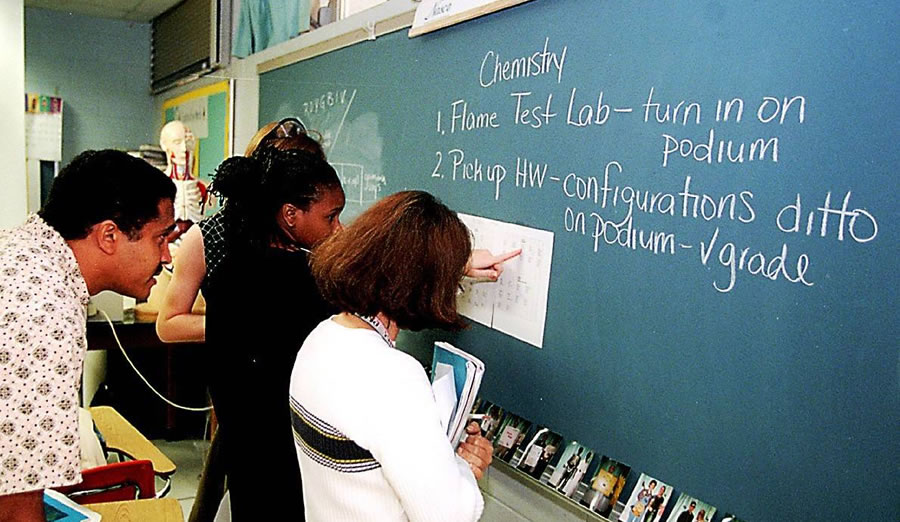 Chemistry
1. Flame Test Lab – turn in on
podium
2. Pick up HW – configurations ditto
on podium – √ grade